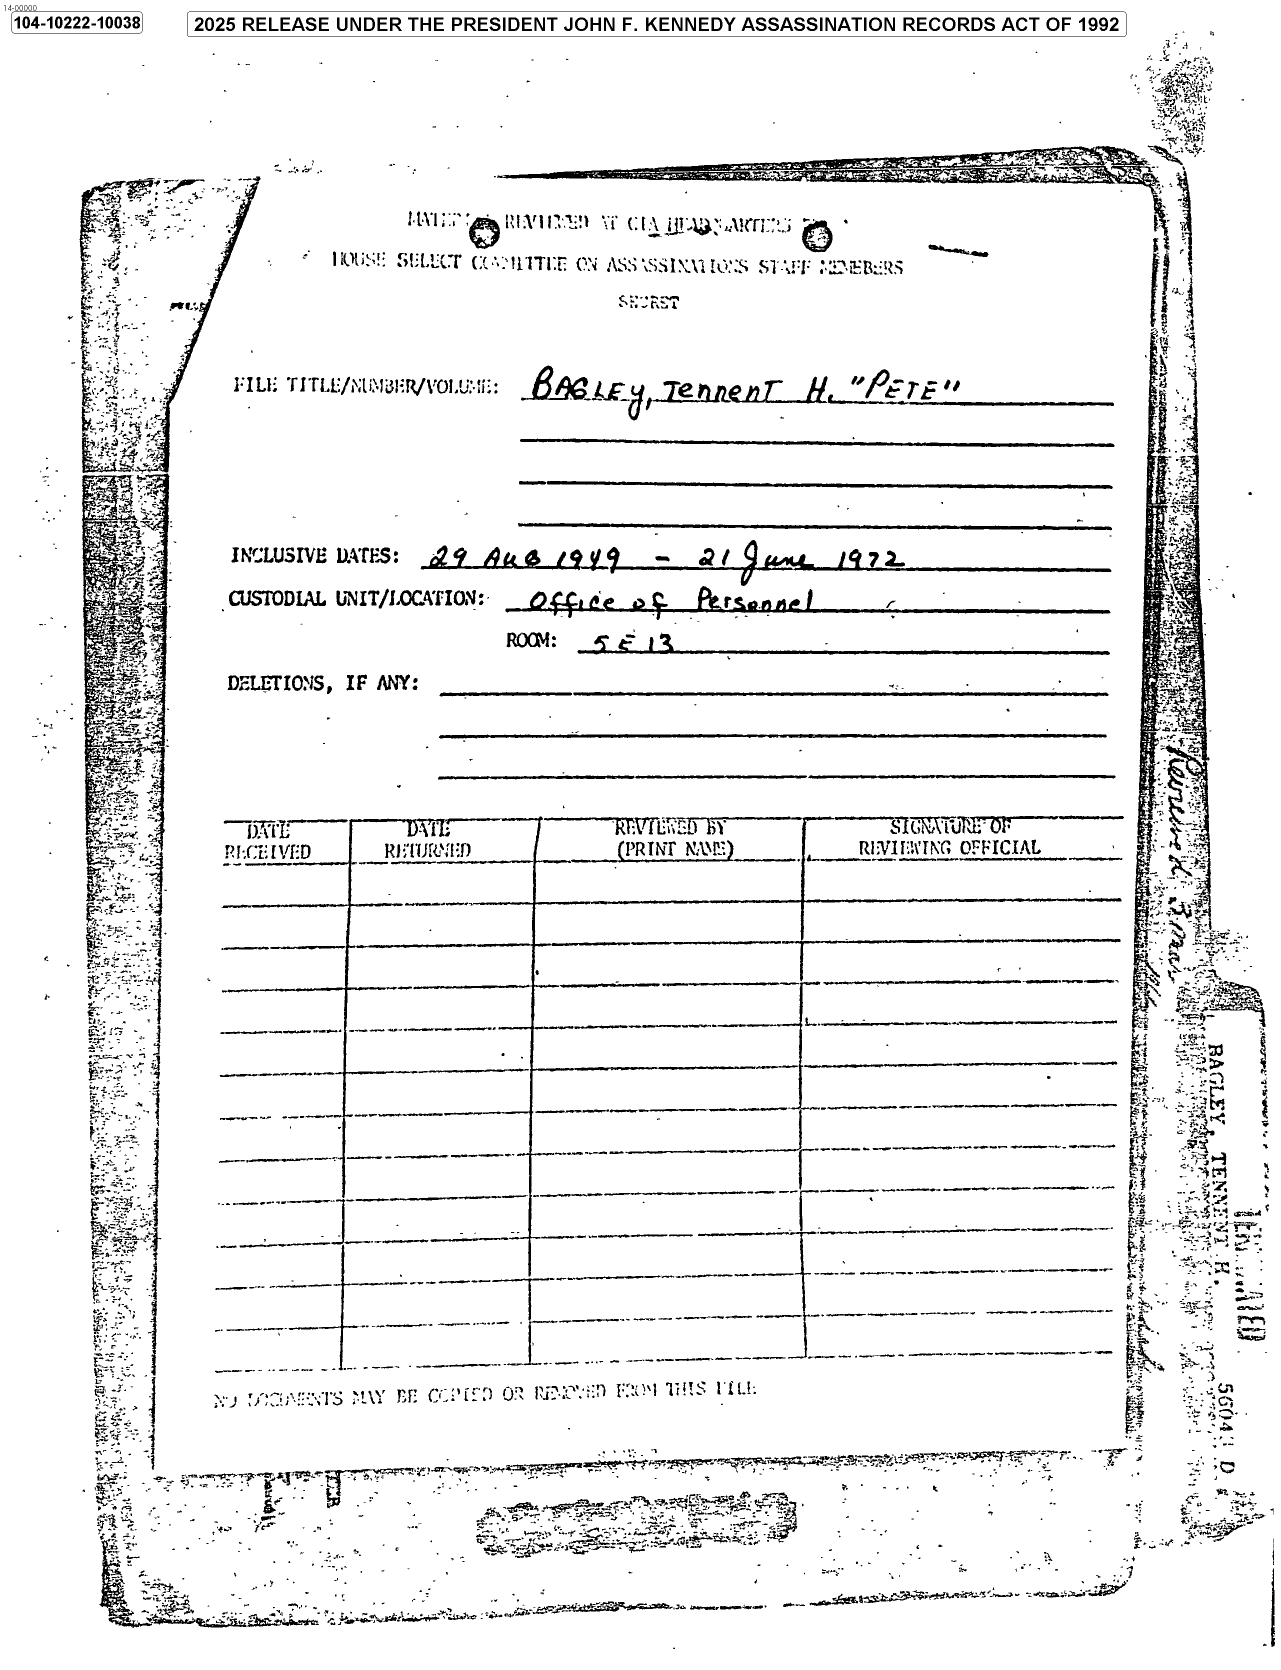 14-00000
104-10222-10038
2025 RELEASE UNDER THE PRESIDENT JOHN F. KENNEDY ASSASSINATION RECORDS ACT OF 1992
REVIEWED AT CIA HEADQUARTERS
HOUSE SELECT COMMITTEE ON ASSASSINATIONS STAFF MEMBERS
SECRET
FILE TITLE/NUMBER/VOLUME: BAGLEY, Tennent H. "PETE"
INCLUSIVE DATES: 29 AUG 1949 - 21 June 1972
CUSTODIAL UNIT/LOCATION: Office of Personnel
ROOM: 5E13
DELETIONS, IF ANY:
DATE RECEIVED
DATE RETURNED
REVIEWED BY (PRINT NAME)
SIGNATURE OF REVIEWING OFFICIAL
NO DOCUMENTS MAY BE COPIED OR REMOVED FROM THIS FILE
Reviewed 3 Mar
BAGLEY, TENNENT H.